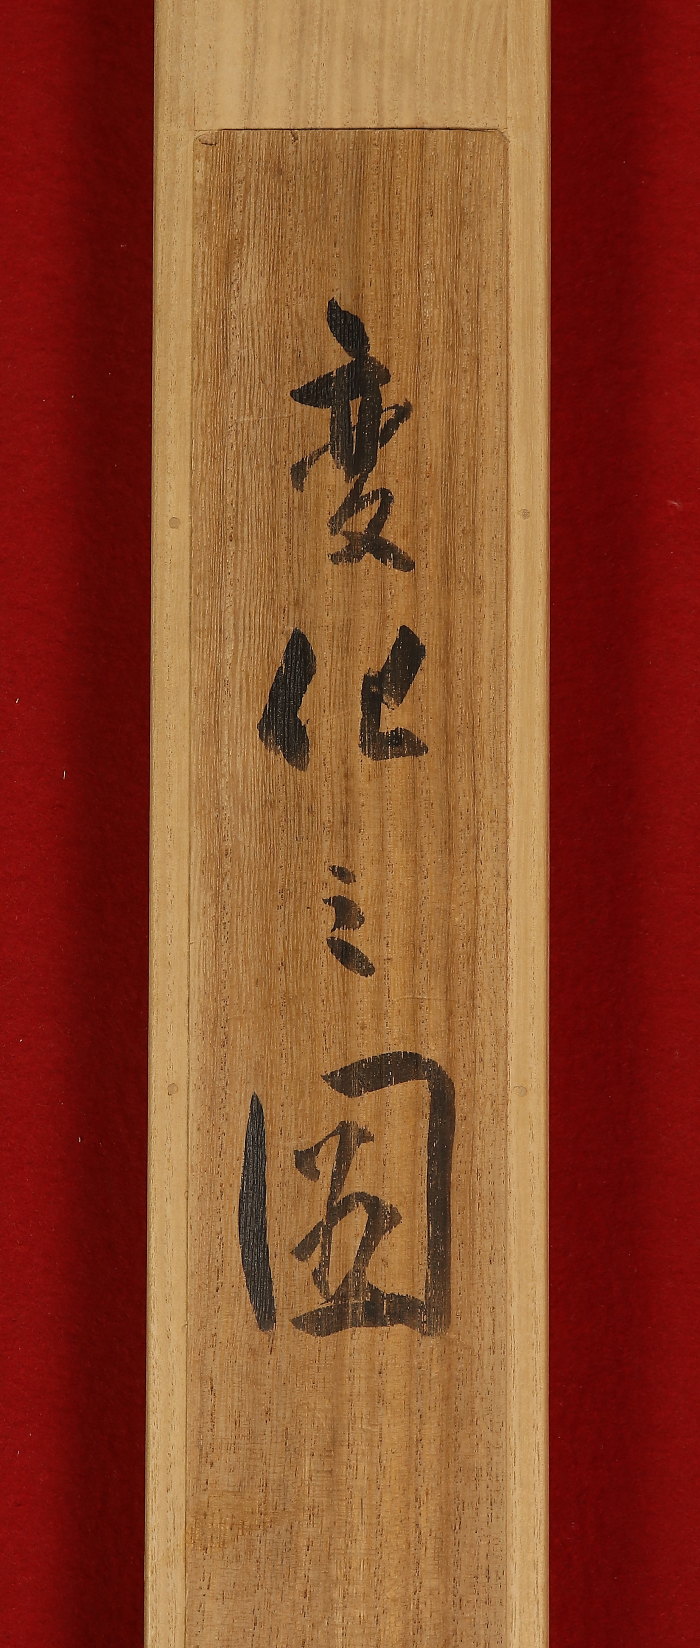 変化之図